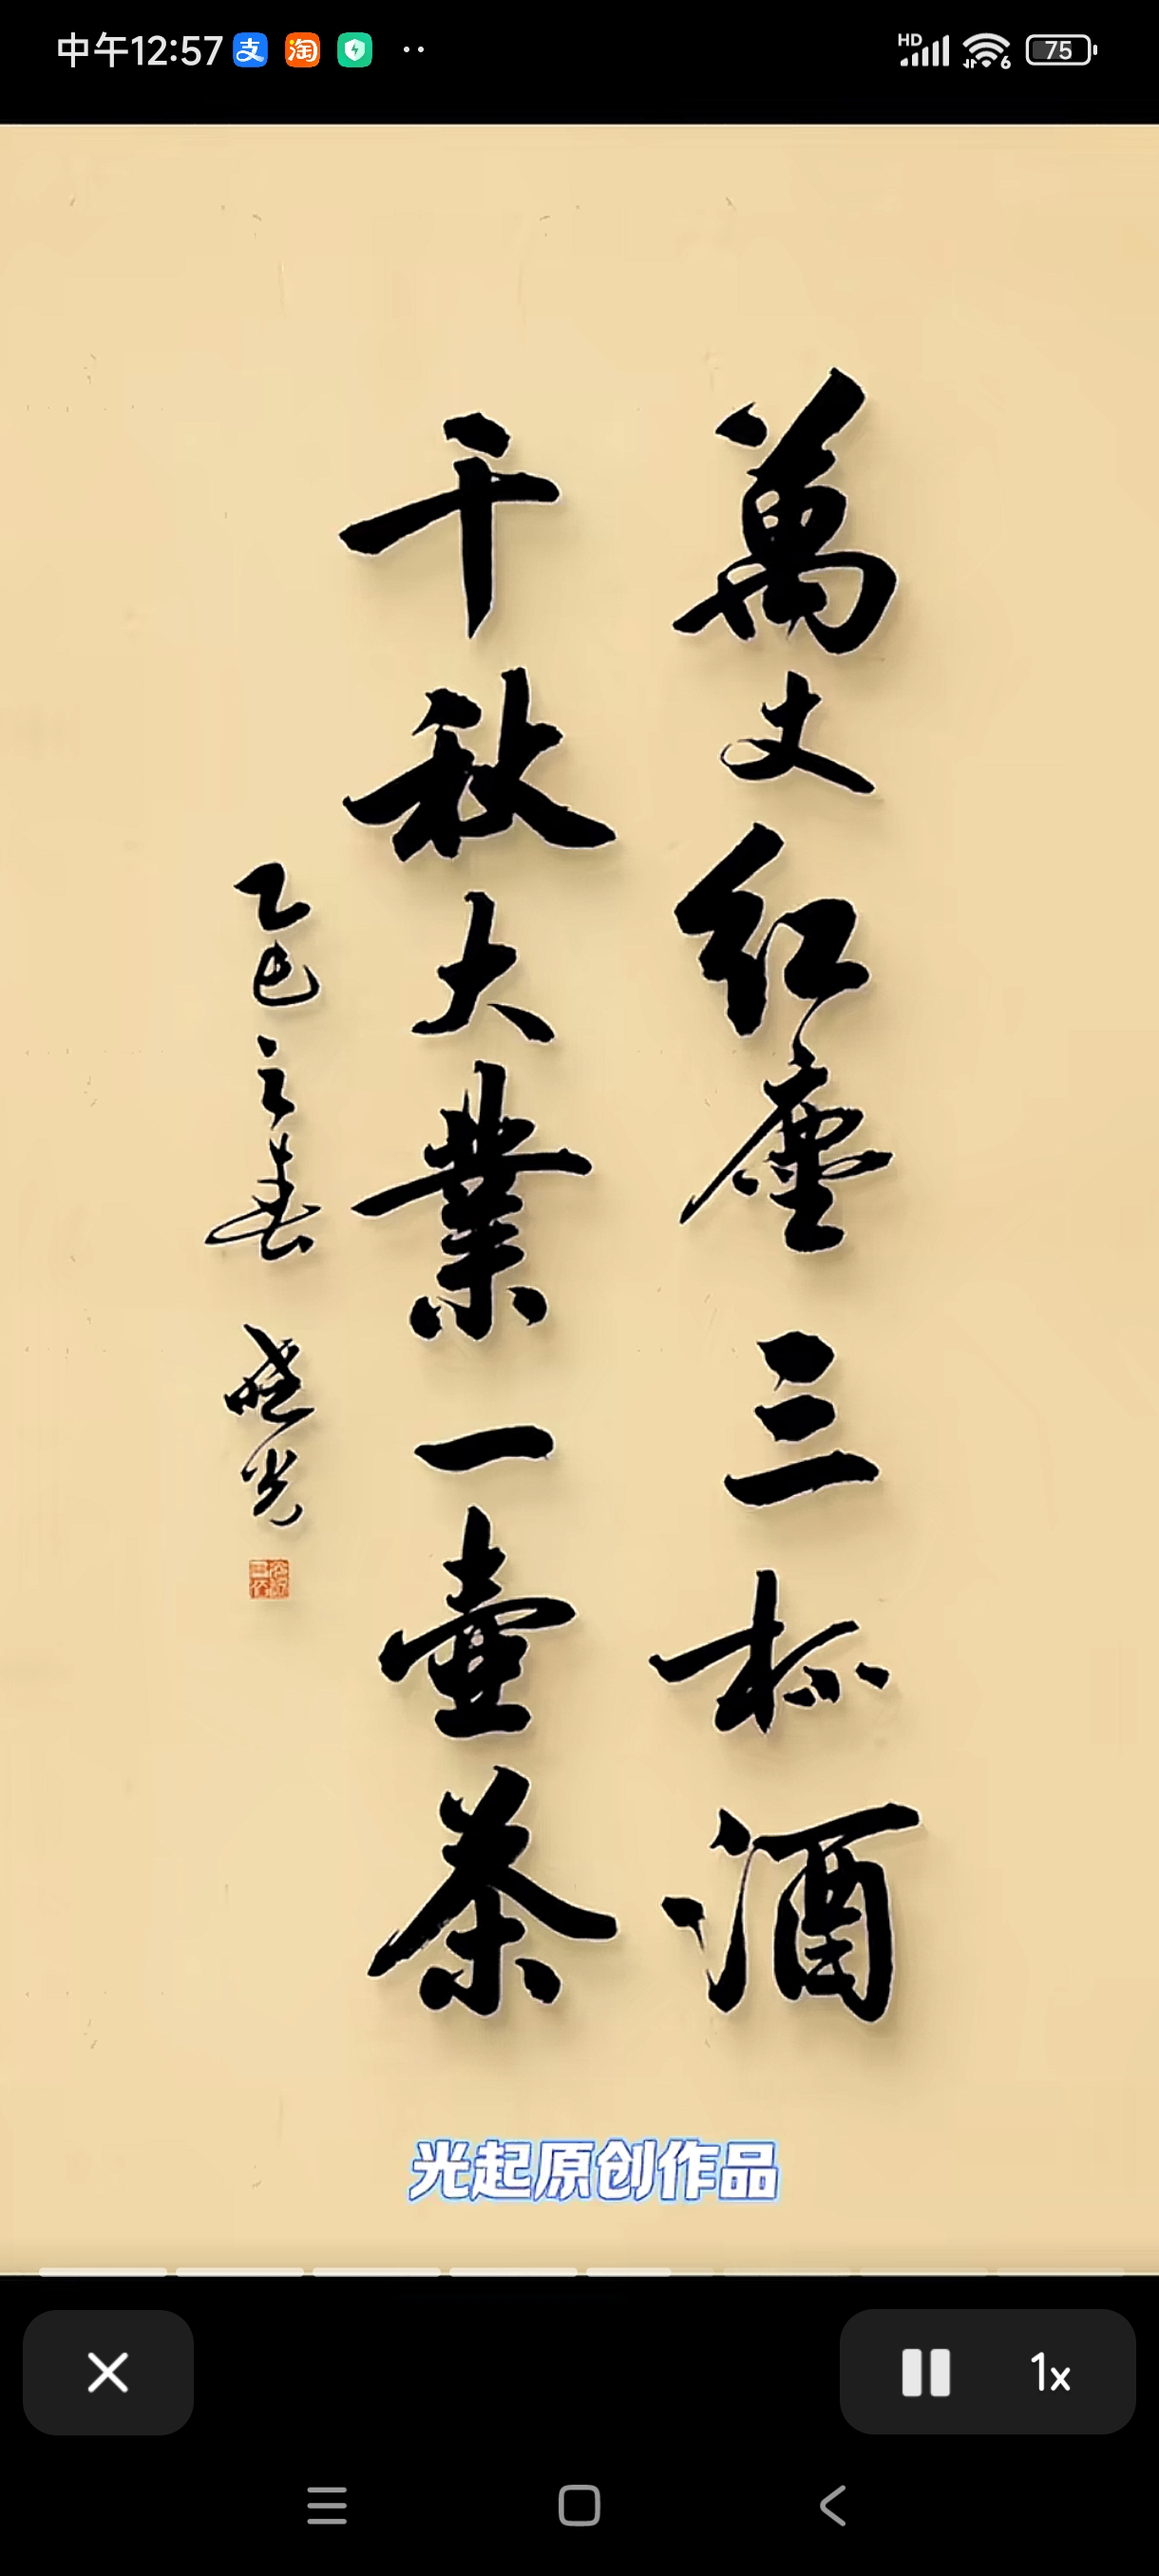 中午12:57
支
淘
HD
6
75
萬丈紅塵三杯酒
千秋大業一壺茶
乙巳之春 曉光
光起原创作品
1x